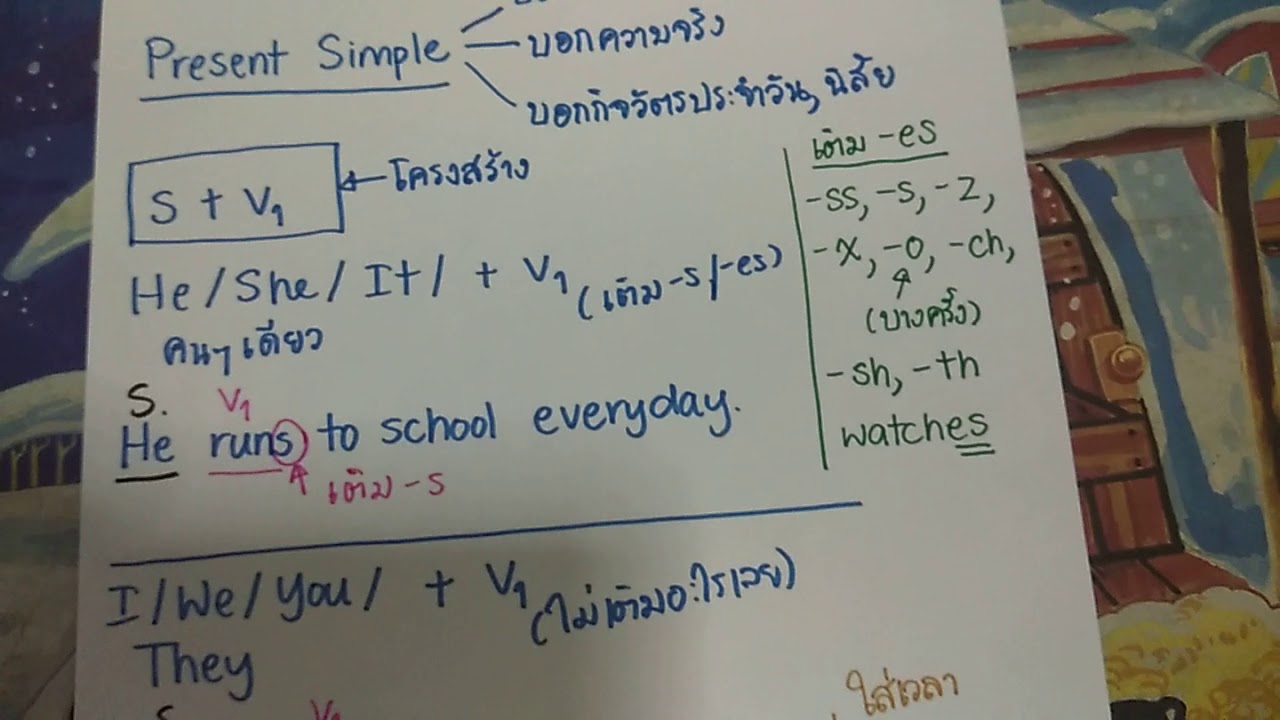 Present Simple
บอกความจริง
บอกกิจวัตรประจำวัน, นิสัย
S + V1
โครงสร้าง
He / She / It / + V1 (เติม -s/-es)
คนๆเดียว
S. V1
He runs to school everyday.
เติม -s
เติม -es
-ss, -s, -z,
-x, -o, -ch,
(บางครั้ง)
-sh, -th
watches
I / We / You / + V1 (ไม่เติมอะไรเลย)
They
ใส่เวลา